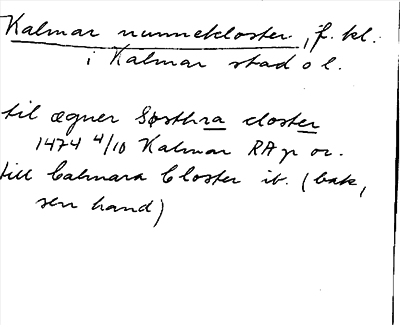 Kalmar nunnekloster, f. kl.
i Kalmar stad o l.
til ægner Søsthra closter
1474 4/10 Kalmar RAp or.
till Calmara Closter ib. (bak,
sen hand)